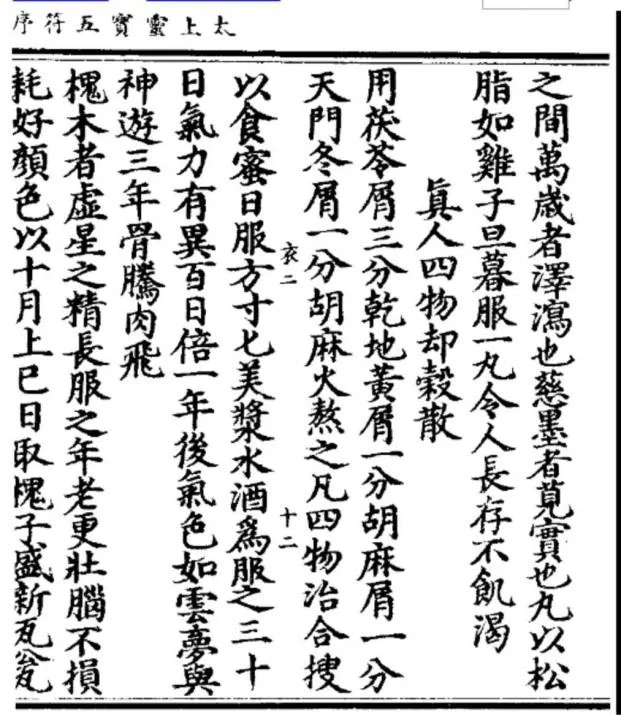 太上靈寶五符序
之間萬歲者澤瀉也慈墨者莧實也丸以松
脂如雞子旦暮服一丸令人長存不飢渴
真人四物却穀散
用茯苓屑三分乾地黃屑一分胡麻屑一分
天門冬屑一分胡麻火熬之凡四物治合搜
衣二
十二
以食蜜日服方寸匕美漿水酒為服之三十
日氣力有異百日倍一年後氣色如雲夢與
神遊三年骨騰肉飛
槐木者虛星之精長服之年老更壯腦不損
耗好顏色以十月上巳日取槐子盛新瓦瓮